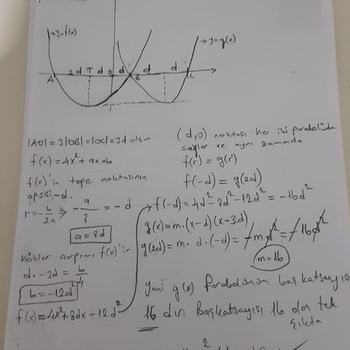 y=f(x)
y=g(x)
A 2d T d 0 d B d d C
|AO| = 3|OB| = |OC| = 3d olsun
f(x) = 4x² + ax + b
f(x)'in tepe noktasının
apsisi -d.
r = -b/2a ⇒ -a/8 = -d
a = 8d
kökler çarpımı f(x)'in
d. -3d = b/4
b = -12d²
f(x) = 4x² + 8dx - 12d²
(d,0) noktası her iki parabolü de
sağlar ve aynı zamanda
f(r) = g(r')
f(-d) = g(2d)
f(-d) = 4d² - 8d² - 12d² = -16d²
g(x) = m.(x-d)(x-3d)
g(2d) = m. d. (-d) = -md² = -16d²
m = 16
yani g(x) parabolünün başkatsayısı
16 dır. Başkatsayısı 16 olan tek